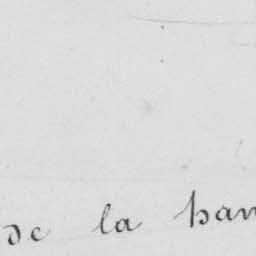 de la ban